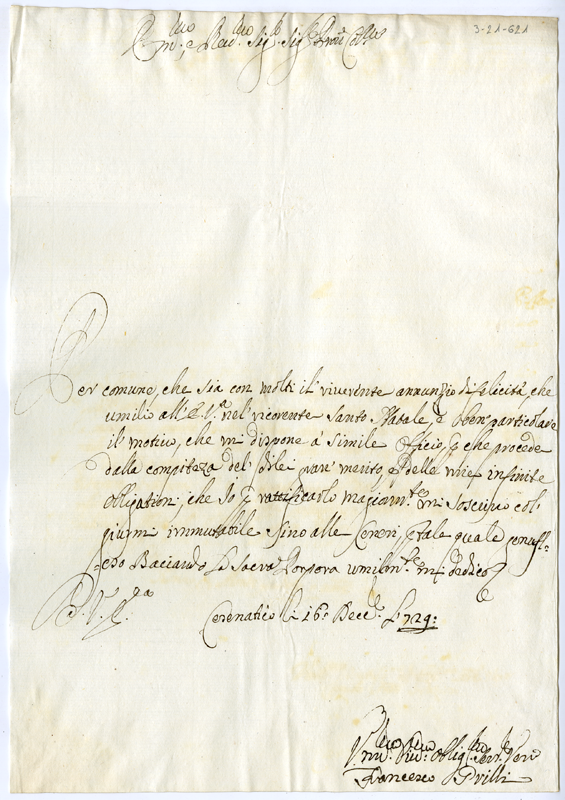 3-21-621
Em.mo e Rev.mo Sig.r Sig.r Pron Col.mo
Per comune, che sia con molti il riverente annunzio di felicità, che
umilio all'E. V.ra nel ricorente Santo Natale, è ben particolare
il motivo, che mi dispone à simile officio, che procede
dalla compitezza del di lei gran merito, e delle mie infinite
obligationi, che Io ratificarlo magiorm.te mi soscrivo col
immutabile sino alle Ceneri, e tale quale genufle-
sso Baciando la Sacra Porpora umilm.te mi dedico
D. V. E.za
Cesenatico li 16 Dece. 1729:
Um.mo Div.mo Oblig.mo Ser.re Vero
Francesco Grilli